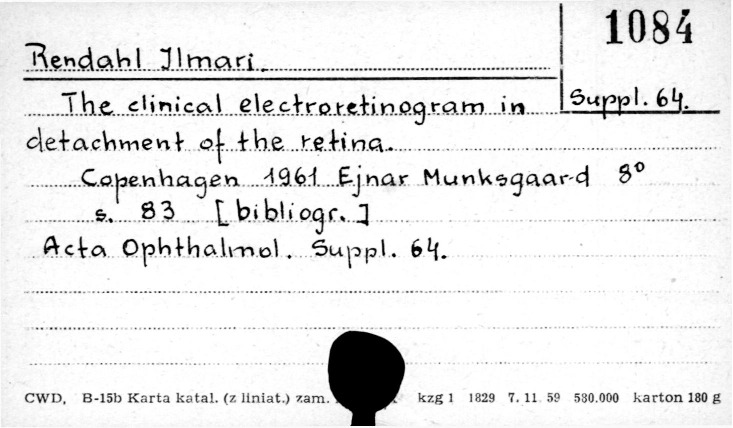 1084
Rendahl Ilmari.
Suppl. 64.
The clinical electroretinogram in
detachment of the retina.
Copenhagen 1961 Ejnar Munksgaard 8º
s. 83 [bibliogr.]
Acta Ophthalmol. Suppl. 64.
CWD, B-15b Karta katal. (z liniat.) zam. kzg 1 1829 7. 11. 59 580.000 karton 180 g